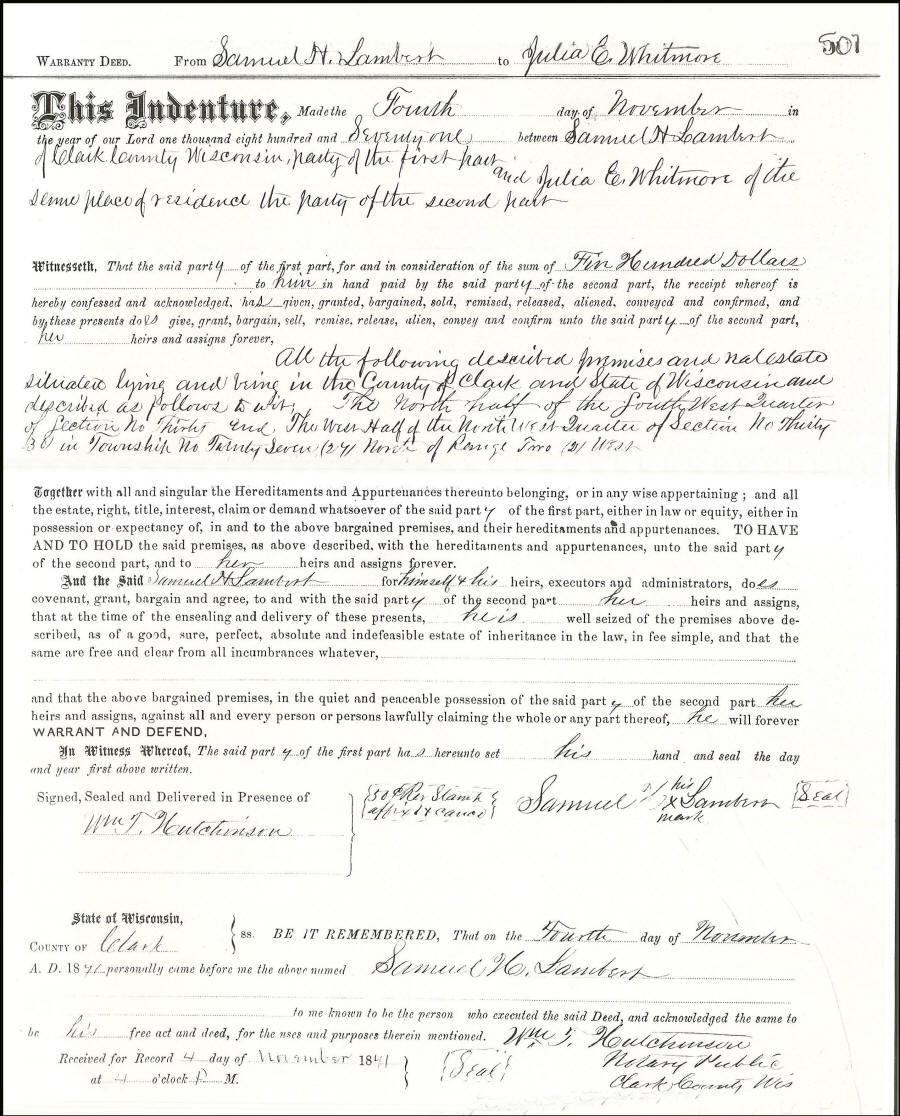 501
WARRANTY DEED. From Samuel H. Lambert to Julia E. Whitmore
This Indenture, Made the Fourth day of November in
the year of our Lord one thousand eight hundred and Seventy one between Samuel H Lambert
of Clark County Wisconsin, party of the first part
and Julia E. Whitmore of the
same place of residence the party of the second part
Witnesseth, That the said party of the first part, for and in consideration of the sum of Five Hundred Dollars
to him in hand paid by the said party of the second part, the receipt whereof is
hereby confessed and acknowledged, has given, granted, bargained, sold, remised, released, aliened, conveyed and confirmed, and
by these presents does give, grant, bargain, sell, remise, release, alien, convey and confirm unto the said party of the second part,
her heirs and assigns forever,
All the following described premises and real estate
situated lying and being in the County of Clark and State of Wisconsin and
described as follows to wit, The North half of the South West Quarter
of Section No Thirty and The West Half of the North West Quarter of Section No Thirty
30 in Township No Twenty Seven (27) North of Range Two (2) West
Together with all and singular the Hereditaments and Appurtenances thereunto belonging, or in any wise appertaining ; and all
the estate, right, title, interest, claim or demand whatsoever of the said party of the first part, either in law or equity, either in
possession or expectancy of, in and to the above bargained premises, and their hereditaments and appurtenances. TO HAVE
AND TO HOLD the said premises, as above described, with the hereditaments and appurtenances, unto the said party
of the second part, and to her heirs and assigns forever.
And the Said Samuel H Lambert for himself & his heirs, executors and administrators, does
covenant, grant, bargain and agree, to and with the said party of the second part her heirs and assigns,
that at the time of the ensealing and delivery of these presents, he is well seized of the premises above de-
scribed, as of a good, sure, perfect, absolute and indefeasible estate of inheritance in the law, in fee simple, and that the
same are free and clear from all incumbrances whatever,
and that the above bargained premises, in the quiet and peaceable possession of the said party of the second part her
heirs and assigns, against all and every person or persons lawfully claiming the whole or any part thereof, he will forever
WARRANT AND DEFEND.
In Witness Whereof, The said party of the first part has hereunto set his hand and seal the day
and year first above written.
Signed, Sealed and Delivered in Presence of
Wm T. Hutchinson
50 ¢ Rev Stamp
affixd & cancd
Samuel H his x mark Lambert Seal
State of Wisconsin,
COUNTY OF Clark ss. BE IT REMEMBERED, That on the Fourth day of November
A. D. 1871 personally came before me the above named Samuel H. Lambert
to me known to be the person who executed the said Deed, and acknowledged the same to
be his free act and deed, for the uses and purposes therein mentioned. Wm T. Hutchinson
Notary Public
Clark County Wis
Received for Record 4 day of November 1871
at 4 o'clock P. M.
Seal